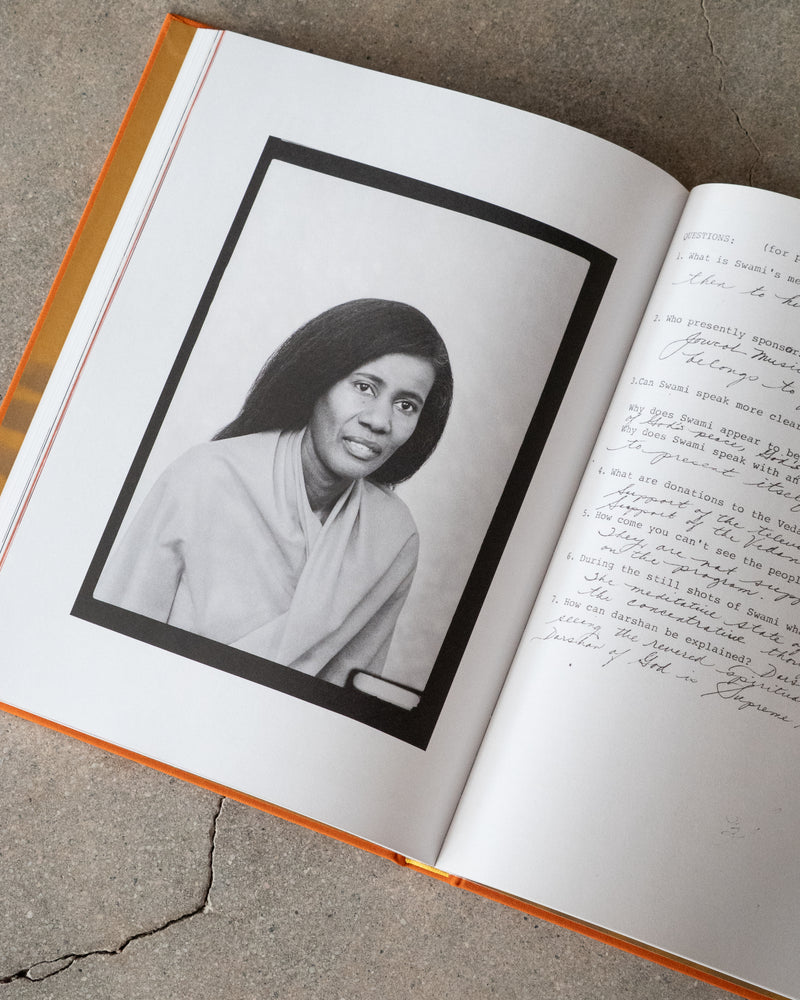 QUESTIONS: (for p
1. What is Swami's me
then to h
2. Who presently sponsor
Jowcol Music
belongs to
3.Can Swami speak more clear
Why does Swami appear to be
of God's peace, God's
Why does Swami speak with an
to present itself
4. What are donations to the Veda
Support of the telev
Support of the Vedan
5. How come you can't see the people
They are not supp
on the program.
6. During the still shots of Swami wh
The meditative state of
the concentrative tho
7. How can darshan be explained? Dars
seeing the revered spiritua
Darshan of God is Supreme